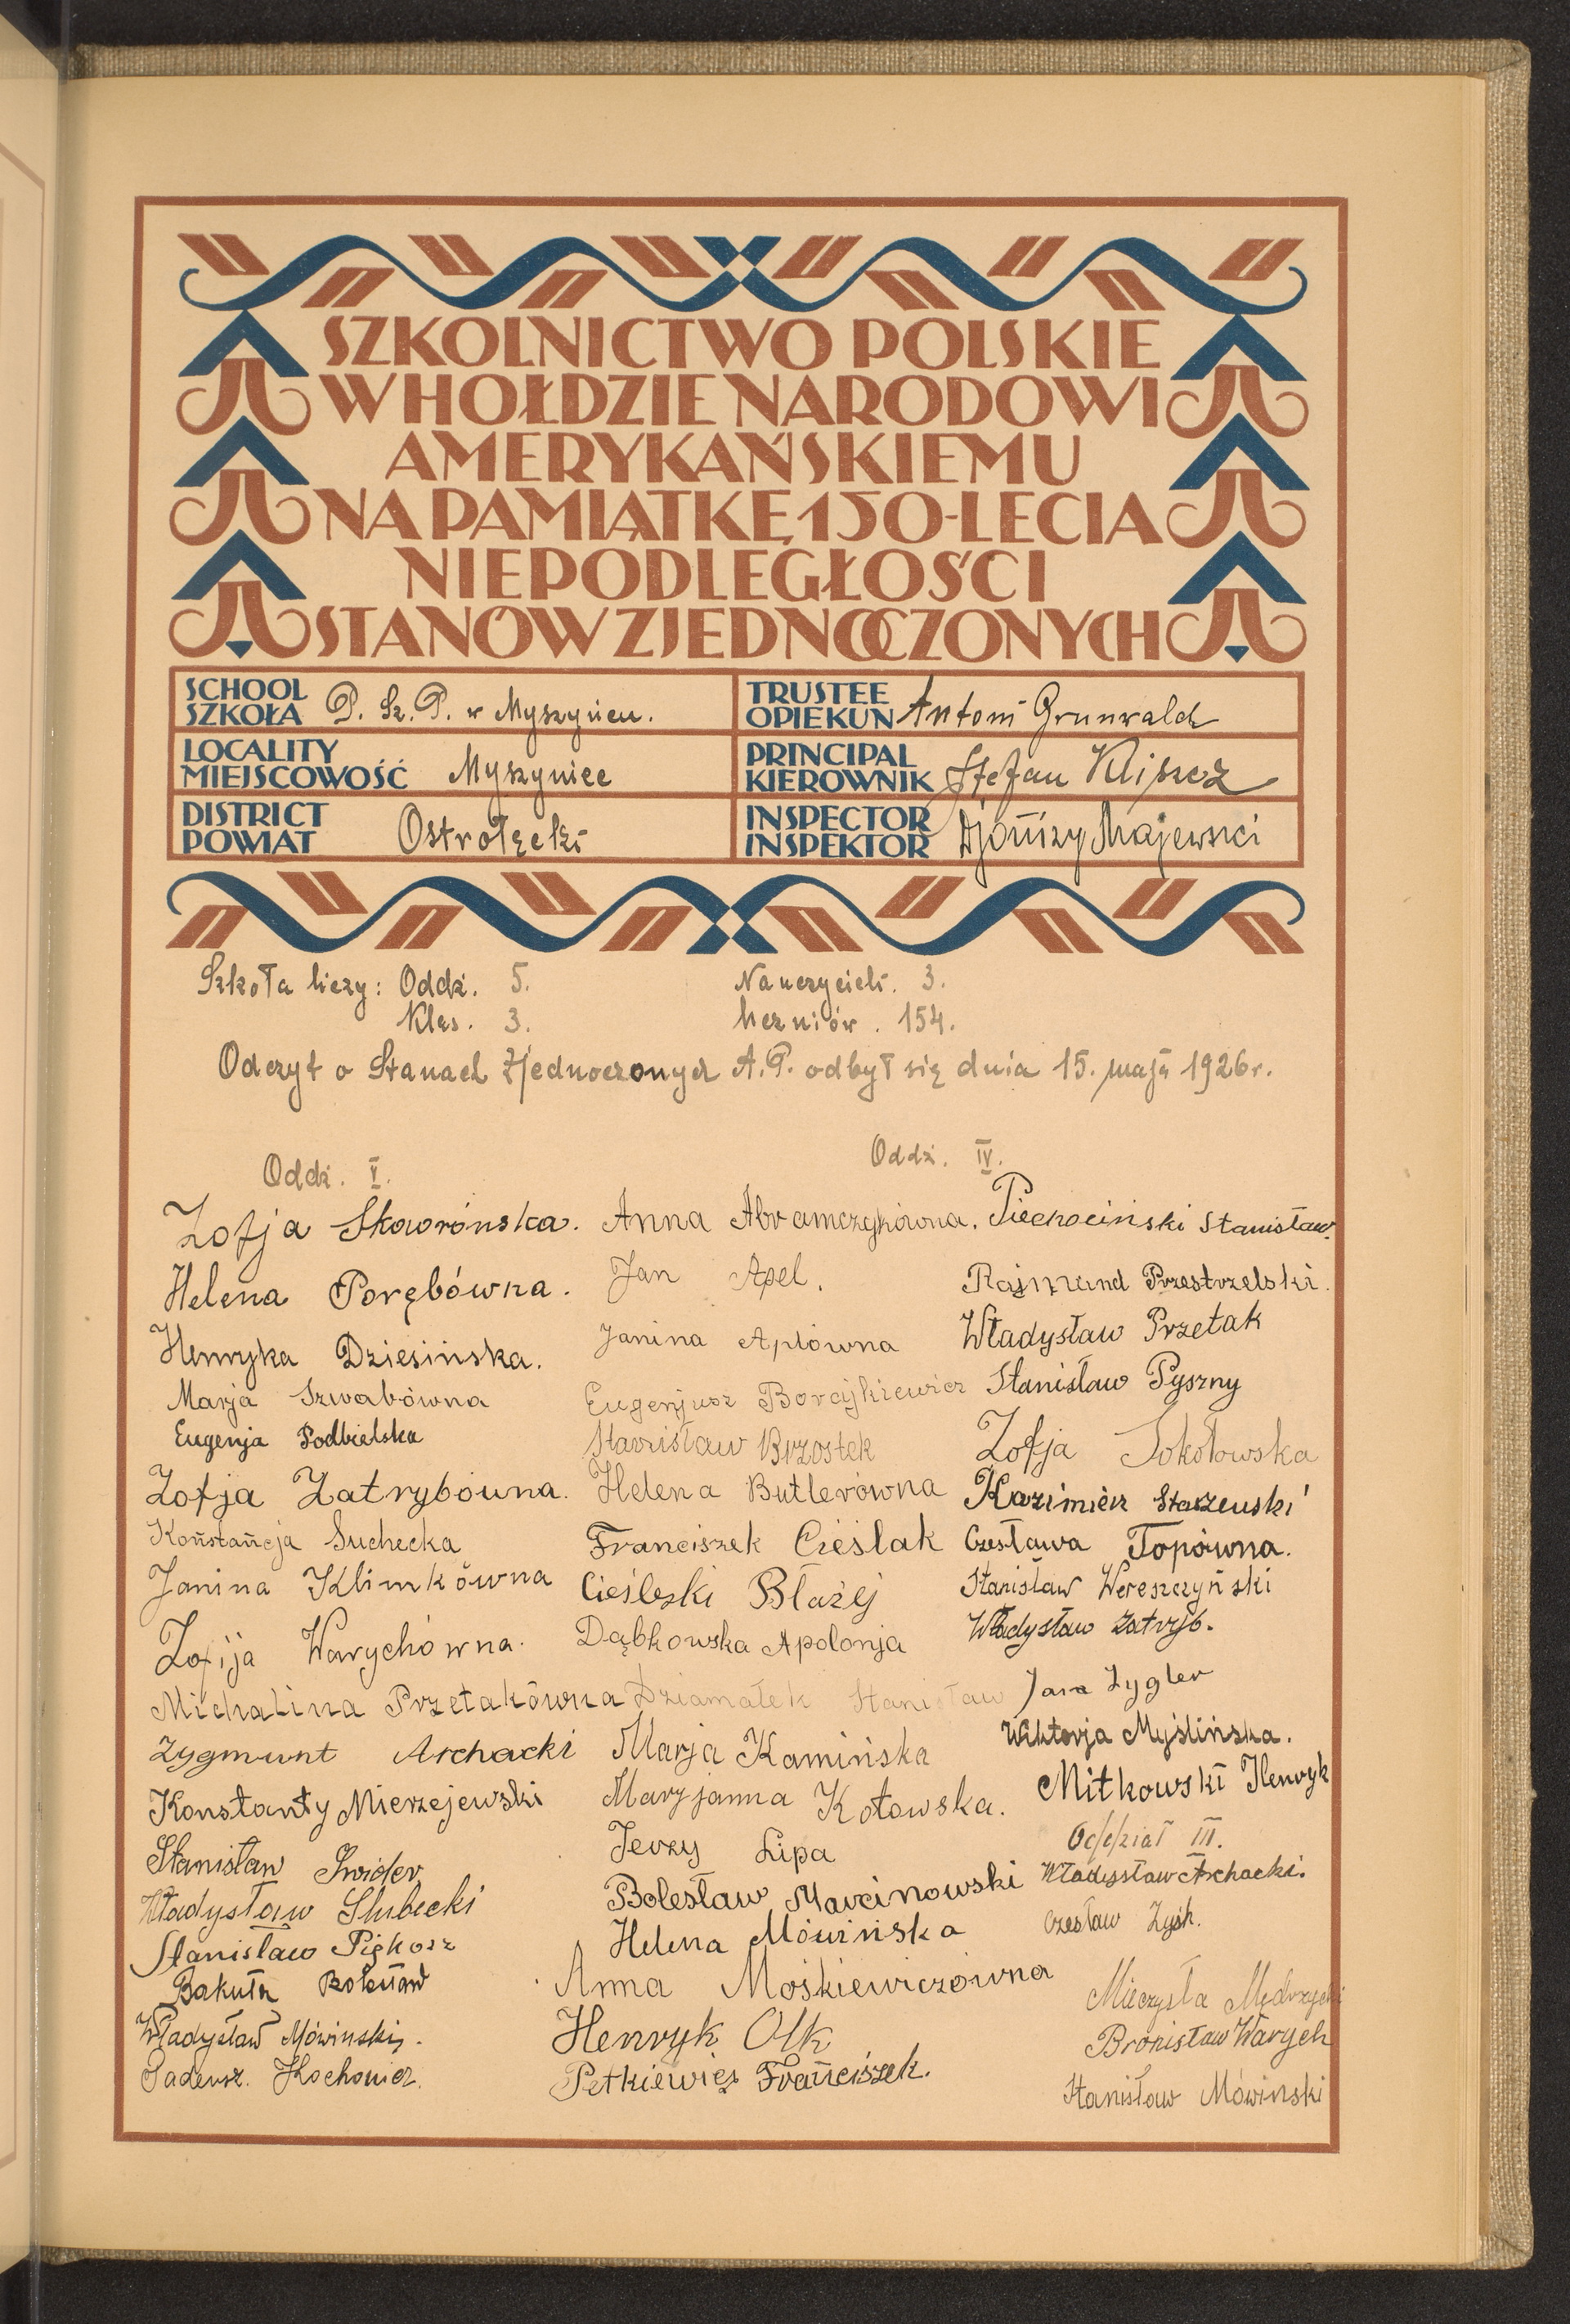 SZKOLNICTWO POLSKIE
W HOŁDZIE NARODOWI
AMERYKAŃSKIEMU
NA PAMIĄTKĘ 150-LECIA
NIEPODLEGŁOŚCI
STANÓW ZJEDNOCZONYCH
SCHOOL
SZKOŁA P. Sz. P. w Myszyńcu.
LOCALITY
MIEJSCOWOŚĆ Myszyniec
DISTRICT
POWIAT Ostrołęcki
TRUSTEE
OPIEKUN Antoni Grunwald
PRINCIPAL
KIEROWNIK Stefan
INSPECTOR
INSPEKTOR Djonizy Majewski
Szkoła liczy: Oddz. 5. Nauczycieli. 3.
Klas. 3. Uczniów. 154.
Odczyt o Stanach Zjednoczonych A. P. odbył się dnia 15. maja 1926 r.
Oddz. V.
Zofja Skworońska.
Helena Porębówna.
Henryka Dziesińska.
Marja Szwabówna
Eugenja Podbielska
Zofja Zatrybówna.
Konstancja Suchecka
Janina Klimkówna
Zofija Warychówna.
Michalina Przetakówna
Zygmunt Archacki
Konstanty Mierzejewski
Stanisław Świder
Władysław Słubecki
Stanisław Piękosz
Bakuła Bolesław
Władysław Mówinski.
Tadeusz. Kochowicz.
Oddz. IV.
Anna Abramczykówna.
Jan Apel.
Janina Aplówna
Eugenjusz
Stanisław Brzostek
Helena Butlerówna
Franciszek Cieślak
Cieślezki Błażej
Dąbkowska Apolonja
Dziamałek Stanisław
Marja Kamińska
Maryjanna Kotowska.
Jerzy Lipa
Bolesław Marcinowski
Helena Mówińska
Anna Moskiewiczówna
Henryk Olk
Petkiewicz Franciszek.
Piechociński Stanisław.
Rajmund Przestrzelski.
Władysław Przetak
Stanisław Pyszny
Zofja Sokołowska
Kazimierz Staszewski
Czesława Topówna.
Stanisław Wereszczyński
Władysław Zatryb.
Jan Zygler
Wiktorja Myślińska.
Mitkowski Henryk
Oddział III.
Władysław Archacki.
Czesław Zysk.
Mieczysła Mędrzycki
Bronisław Warych
Stanisław Mówinski